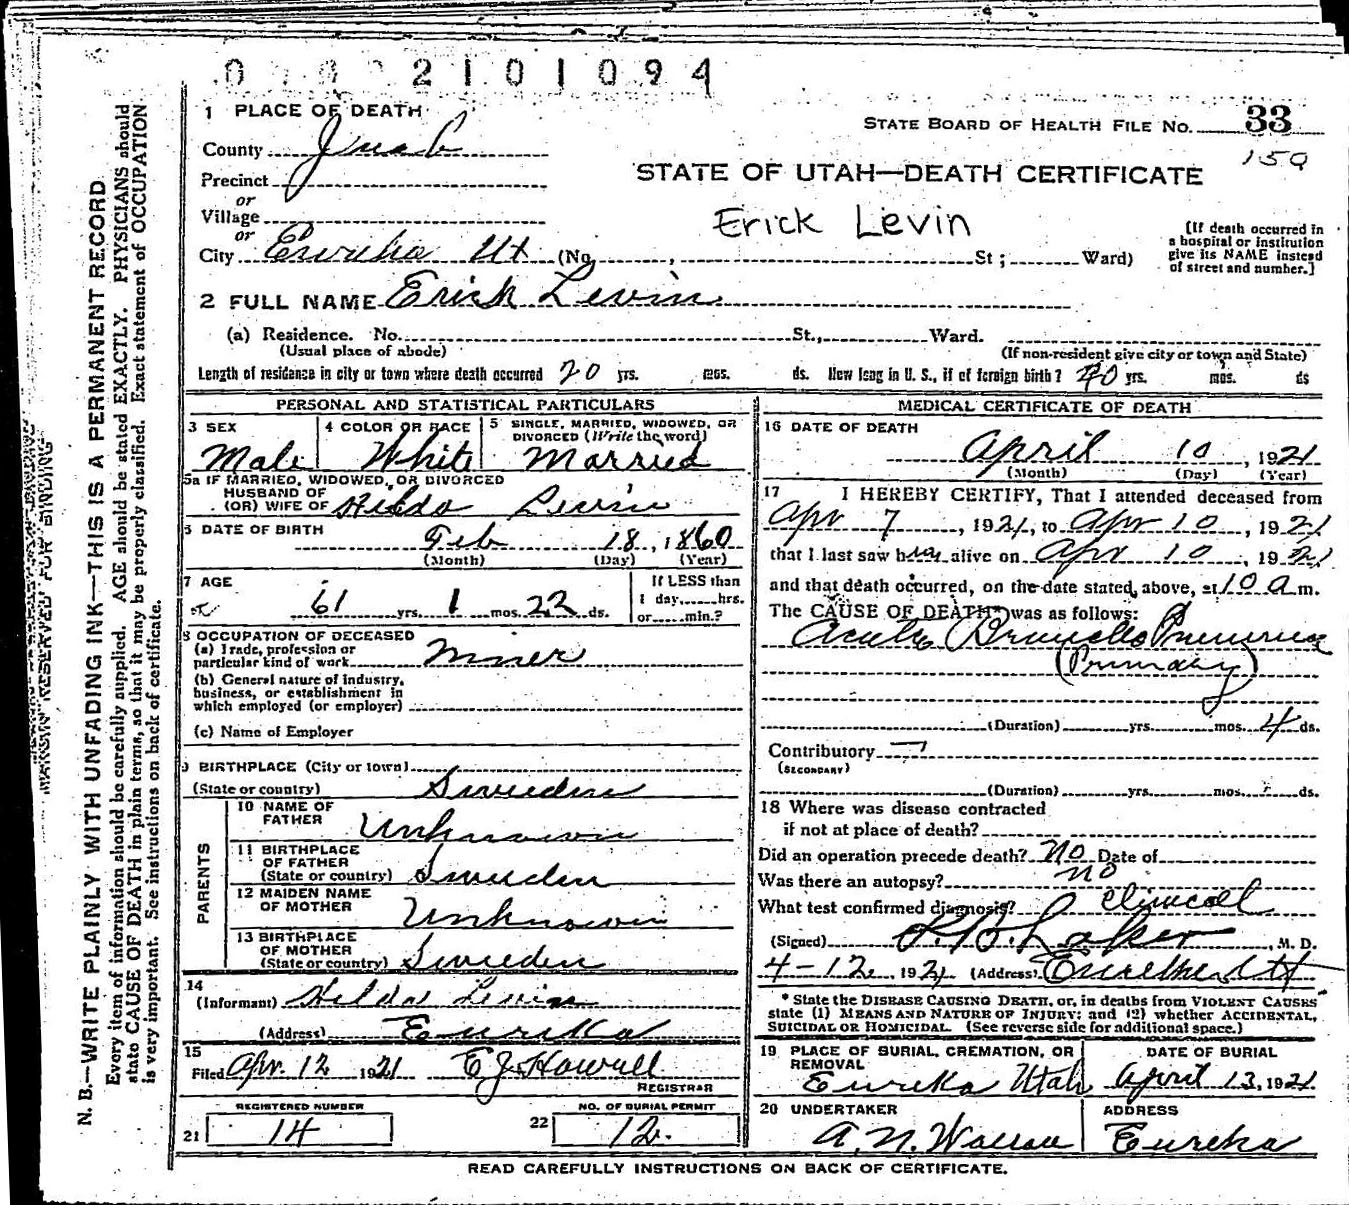 0 0 0 2 1 0 1 0 9 4
1 PLACE OF DEATH
STATE BOARD OF HEALTH FILE NO. 33
159
County Juab
Precinct
or
Village
or
STATE OF UTAH—DEATH CERTIFICATE
Erick Levin
City Eureka Ut (No. , St ; Ward)
[If death occurred in a hospital or institution give its NAME instead of street and number.]
2 FULL NAME Erick Levin
(a) Residence. No. St., Ward.
(Usual place of abode) (If non-resident give city or town and State)
Length of residence in city or town where death occurred 20 yrs. mos. ds. How long in U. S., if of foreign birth? 40 yrs. mos. ds
PERSONAL AND STATISTICAL PARTICULARS
3 SEX Male
4 COLOR OR RACE White
5 SINGLE, MARRIED, WIDOWED, OR DIVORCED (Write the word) Married
5a IF MARRIED, WIDOWED, OR DIVORCED
HUSBAND OF
(OR) WIFE OF Hilda Levin
6 DATE OF BIRTH Feb 18, 1860
(Month) (Day) (Year)
7 AGE 61 yrs. 1 mos. 22 ds.
If LESS than
1 day, hrs.
or min.?
8 OCCUPATION OF DECEASED
(a) Trade, profession or
particular kind of work Miner
(b) General nature of industry,
business, or establishment in
which employed (or employer)
(c) Name of Employer
9 BIRTHPLACE (City or town)
(State or country) Sweden
PARENTS
10 NAME OF FATHER Unknown
11 BIRTHPLACE OF FATHER (State or country) Sweden
12 MAIDEN NAME OF MOTHER Unknown
13 BIRTHPLACE OF MOTHER (State or country) Sweden
14
(Informant) Hilda Levin
(Address) Eureka
15
Filed Apr. 12 1921 E J Howell
REGISTRAR
REGISTERED NUMBER
21 14
NO. OF BURIAL PERMIT
22 12.
MEDICAL CERTIFICATE OF DEATH
16 DATE OF DEATH
April 10, 1921
(Month) (Day) (Year)
17 I HEREBY CERTIFY, That I attended deceased from
Apr 7, 1921, to Apr 10, 1921
that I last saw him alive on Apr 10, 1921
and that death occurred, on the date stated above, at 10 a m.
The CAUSE OF DEATH* was as follows:
Acute Broncho Pneumonia
(Primary)
(Duration) yrs. mos. 4 ds.
Contributory
(SECONDARY)
(Duration) yrs. mos. ds.
18 Where was disease contracted
if not at place of death?
Did an operation precede death? No Date of
Was there an autopsy? no
What test confirmed diagnosis? Clinical
(Signed) Laker, M. D.
4-12, 1921 (Address)
* State the DISEASE CAUSING DEATH, or, in deaths from VIOLENT CAUSES
state (1) MEANS AND NATURE OF INJURY; and (2) whether ACCIDENTAL,
SUICIDAL OR HOMICIDAL. (See reverse side for additional space.)
19 PLACE OF BURIAL, CREMATION, OR REMOVAL
Eureka Utah
DATE OF BURIAL
April 13, 1921
20 UNDERTAKER
A. N. Wallace
ADDRESS
Eureka
READ CAREFULLY INSTRUCTIONS ON BACK OF CERTIFICATE.
MARGIN RESERVED FOR BINDING
N. B.—WRITE PLAINLY WITH UNFADING INK—THIS IS A PERMANENT RECORD
Every item of information should be carefully supplied. AGE should be stated EXACTLY. PHYSICIANS should
state CAUSE OF DEATH in plain terms, so that it may be properly classified. Exact statement of OCCUPATION
is very important. See instructions on back of certificate.